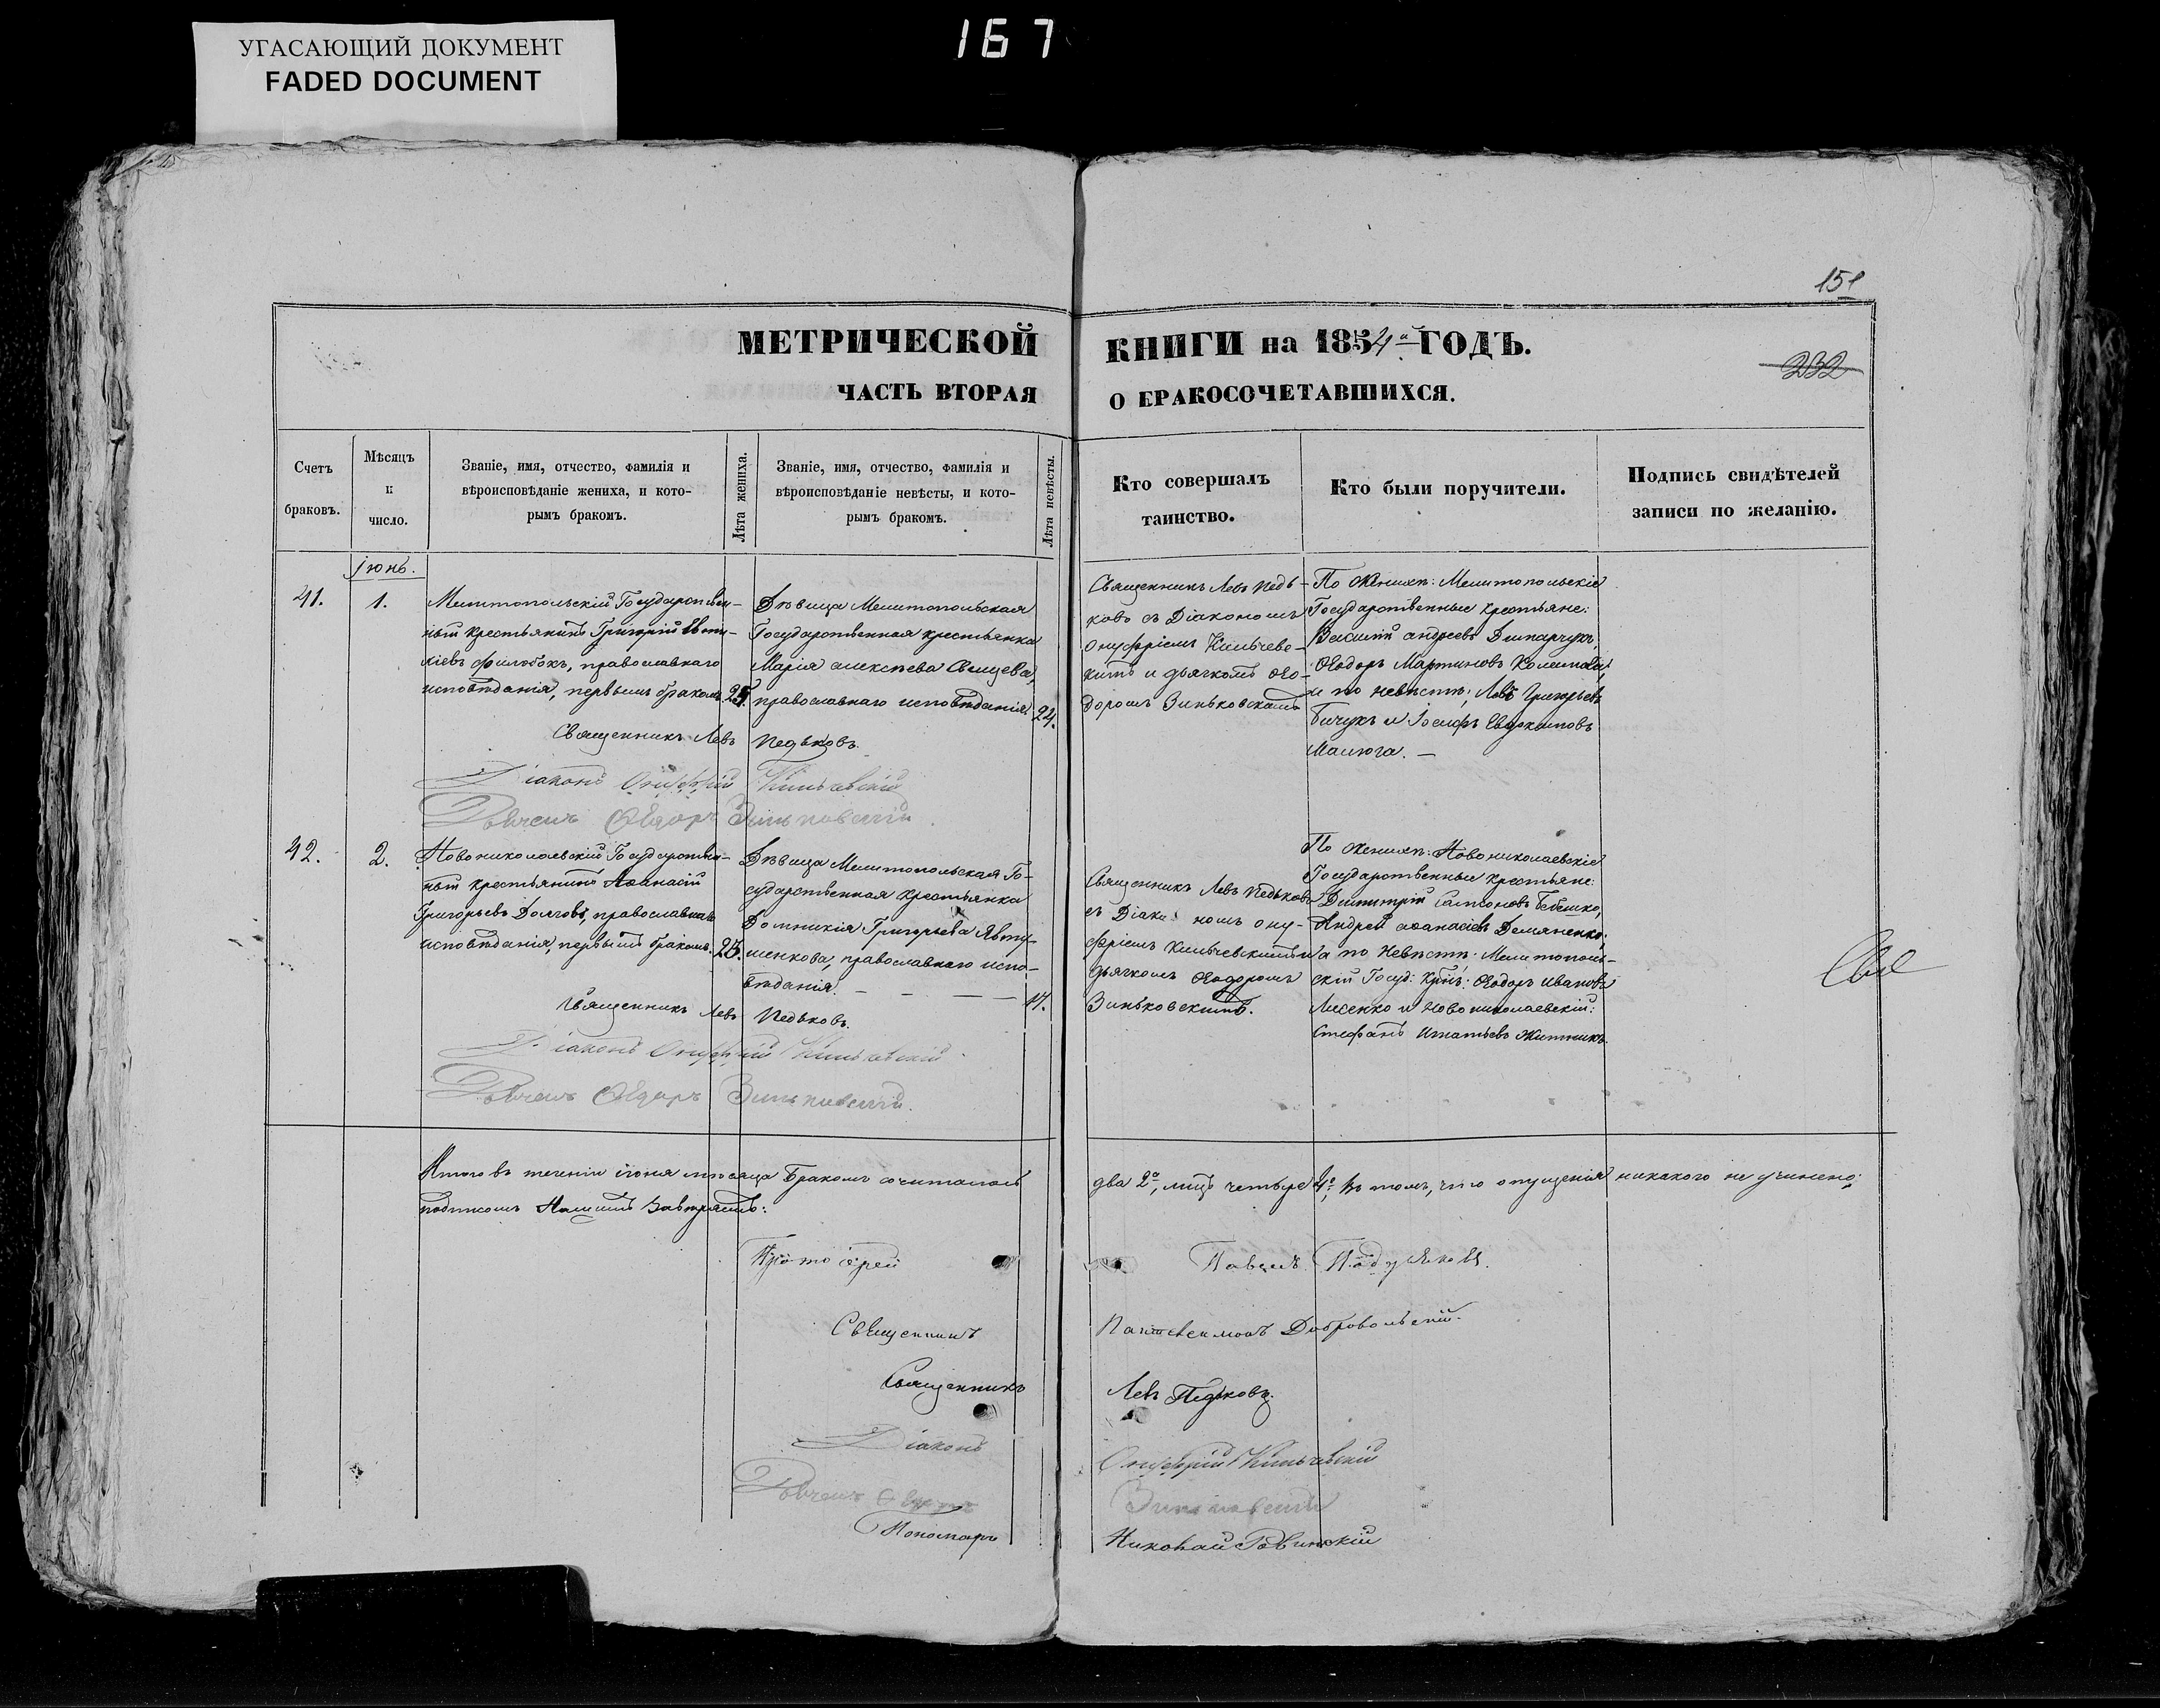 УГАСАЮЩИЙ ДОКУМЕНТ
FADED DOCUMENT
167
151
МЕТРИЧЕСКОЙ КНИГИ на 1854й ГОДЪ.
232
ЧАСТЬ ВТОРАЯ О БРАКОСОЧЕТАВШИХСЯ.
Счетъ
браковъ.
Мѣсяцъ
и
число.
Званіе, имя, отчество, фамилія и
вѣроисповѣданіе жениха, и кото-
рымъ бракомъ.
Лѣта жениха.
Званіе, имя, отчество, фамилія и
вѣроисповѣданіе невѣсты, и кото-
рымъ бракомъ.
Лѣта невѣсты.
Кто совершалъ
таинство.
Кто были поручители.
Подпись свидѣтелей
записи по желанію.
Іюнь.
41.
1.
Мелитопольскій Государствен-
ный крестьянинъ Григорій Евти-
хіевъ Филобокъ, православнаго
исповѣданія, первымъ бракомъ
25.
Дѣвица Мелитопольская
Государственная крестьянка
Марія Алексѣева
православнаго исповѣданія.
24.
Священникъ Левъ Педь-
ковъ съ Діакономъ
Онуфріемъ Кильчевс-
кимъ и дьячкомъ Ѳео-
доромъ Зиньковскимъ
По Женихѣ: Мелитопольскіе
Государственные крестьяне:
Василій Андреевъ
Ѳеодоръ Мартиновъ
и по невѣстѣ; Левъ Григорьевъ
Бичукъ и Іосифъ Евдокимовъ
Малюга. —
Священникъ Левъ Педьковъ.
Діаконъ Онуфрій Кильчевскій
Дьячекъ Ѳеодоръ Зиньковскій.
42.
2.
Новониколаевскій Государствен-
ный крестьянинъ Аѳанасій
Григорьевъ Долговъ, православнаго
исповѣданія, первымъ бракомъ.
25.
Дѣвица Мелитопольская Го-
сударственная крестьянка
Домникія Григорьева Явту-
шенкова, православнаго испо-
вѣданія. — — —
17.
Священникъ Левъ Педьковъ
съ Діакономъ Ону-
фріемъ Кильчевскимъ и
дьячкомъ Ѳеодоромъ
Зиньковскимъ.
По Женихѣ: Новониколаевскіе
Государственные крестьяне:
Димитрій
Андрей Аѳанасіевъ Демяненко;
а по Невѣстѣ: Мелитополь-
скій Госуд: Ѳеодоръ Ивановъ
Лисенко и Новониколаевскій:
Стефанъ Игнатьевъ Житникъ.
Священникъ Левъ Педьковъ.
Діаконъ Онуфрій Кильчевскій.
Дьячекъ Ѳеодоръ Зиньковскій.
Итого въ теченіи іюня мѣсяца Бракомъ сочиталось два 2а, лицъ четыре 4е. Въ томъ, что опущенія никакого не учинено:
подписомъ Нашимъ
Протоіерей Павелъ
Священникъ Пантелеимонъ Добровольскій.
Священникъ Левъ Педьковъ.
Діаконъ Онуфрій Кильчевскій
Дьячекъ Ѳеодоръ Зиньковскій
Пономарь Николай